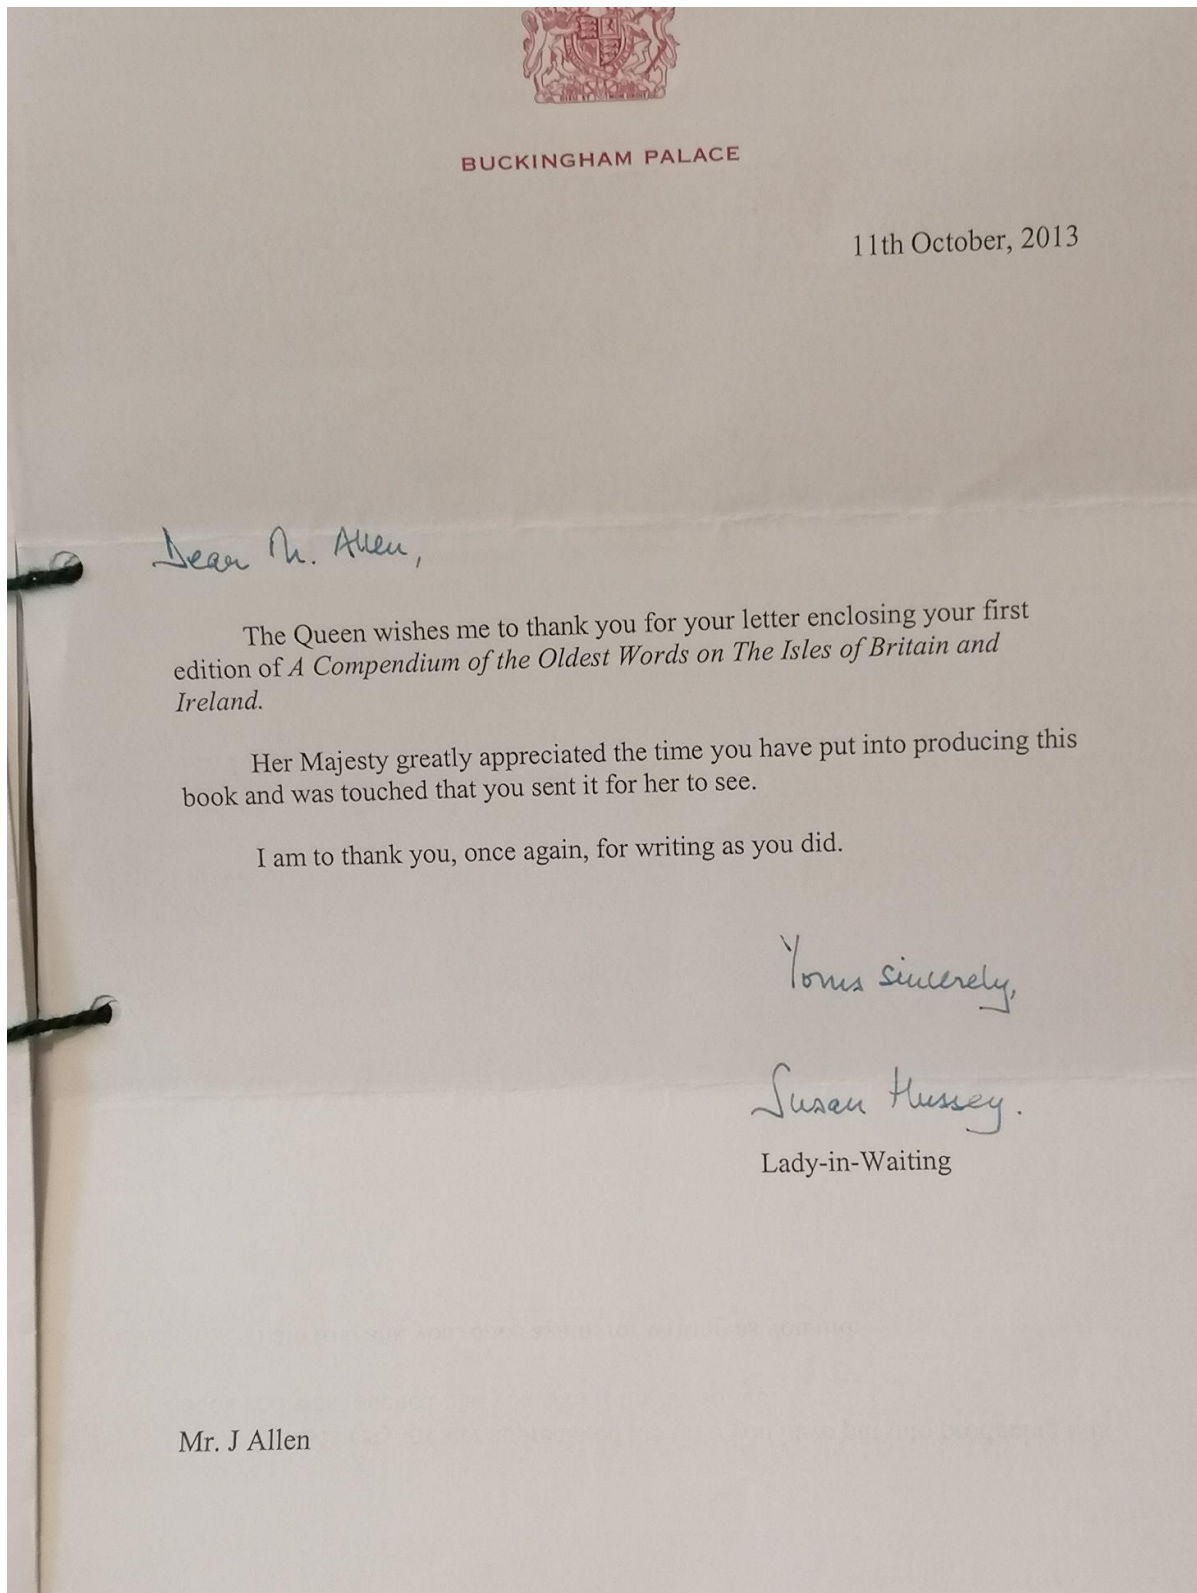 BUCKINGHAM PALACE
11th October, 2013
Dear Mr. Allen,
The Queen wishes me to thank you for your letter enclosing your first
edition of A Compendium of the Oldest Words on The Isles of Britain and
Ireland.
Her Majesty greatly appreciated the time you have put into producing this
book and was touched that you sent it for her to see.
I am to thank you, once again, for writing as you did.
Yours sincerely,
Susan Hussey.
Lady-in-Waiting
Mr. J Allen